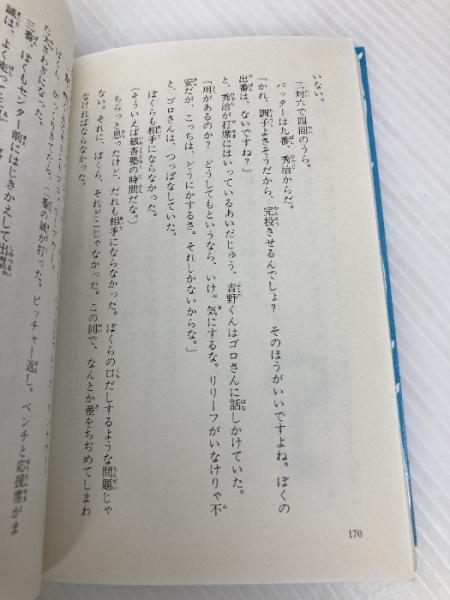 いない。
対六で四回のうら。
バッターは九番、秀治からだ。
「かれ、調子よさそうだから、完投させるんでしょ？　そのほうがいいですよね。ぼくの
出番は、ないですね？」
と、秀治が打席にはいっているあいだじゅう、青野くんはゴロさんに話しかけていた。
「用があるのか？　どうしてもというなら、いけ。気にするな。リリーフがいなけりゃ不
安だが、こっちは、どうにかするさ。それしかないからな。」
と、ゴロさんは、つっぱなしていた。
ぼくらも相手にならなかった。
（そういえば銀杏塾の時間だな。）
ちらっと思ったけど、だれも相手にならなかった。ぼくらの口だしするような問題じゃ
ない。それに、ぼくら、それどころじゃなかった。この回で、なんとか差をちぢめてしまわ
なければならなかった。
番の誠が打った。ピッチャー返し。ベンチと応援席がま
た大さわぎになった。
三番、ぼくもセンター前にはじきかえして出塁
誠は、よく走って三
170